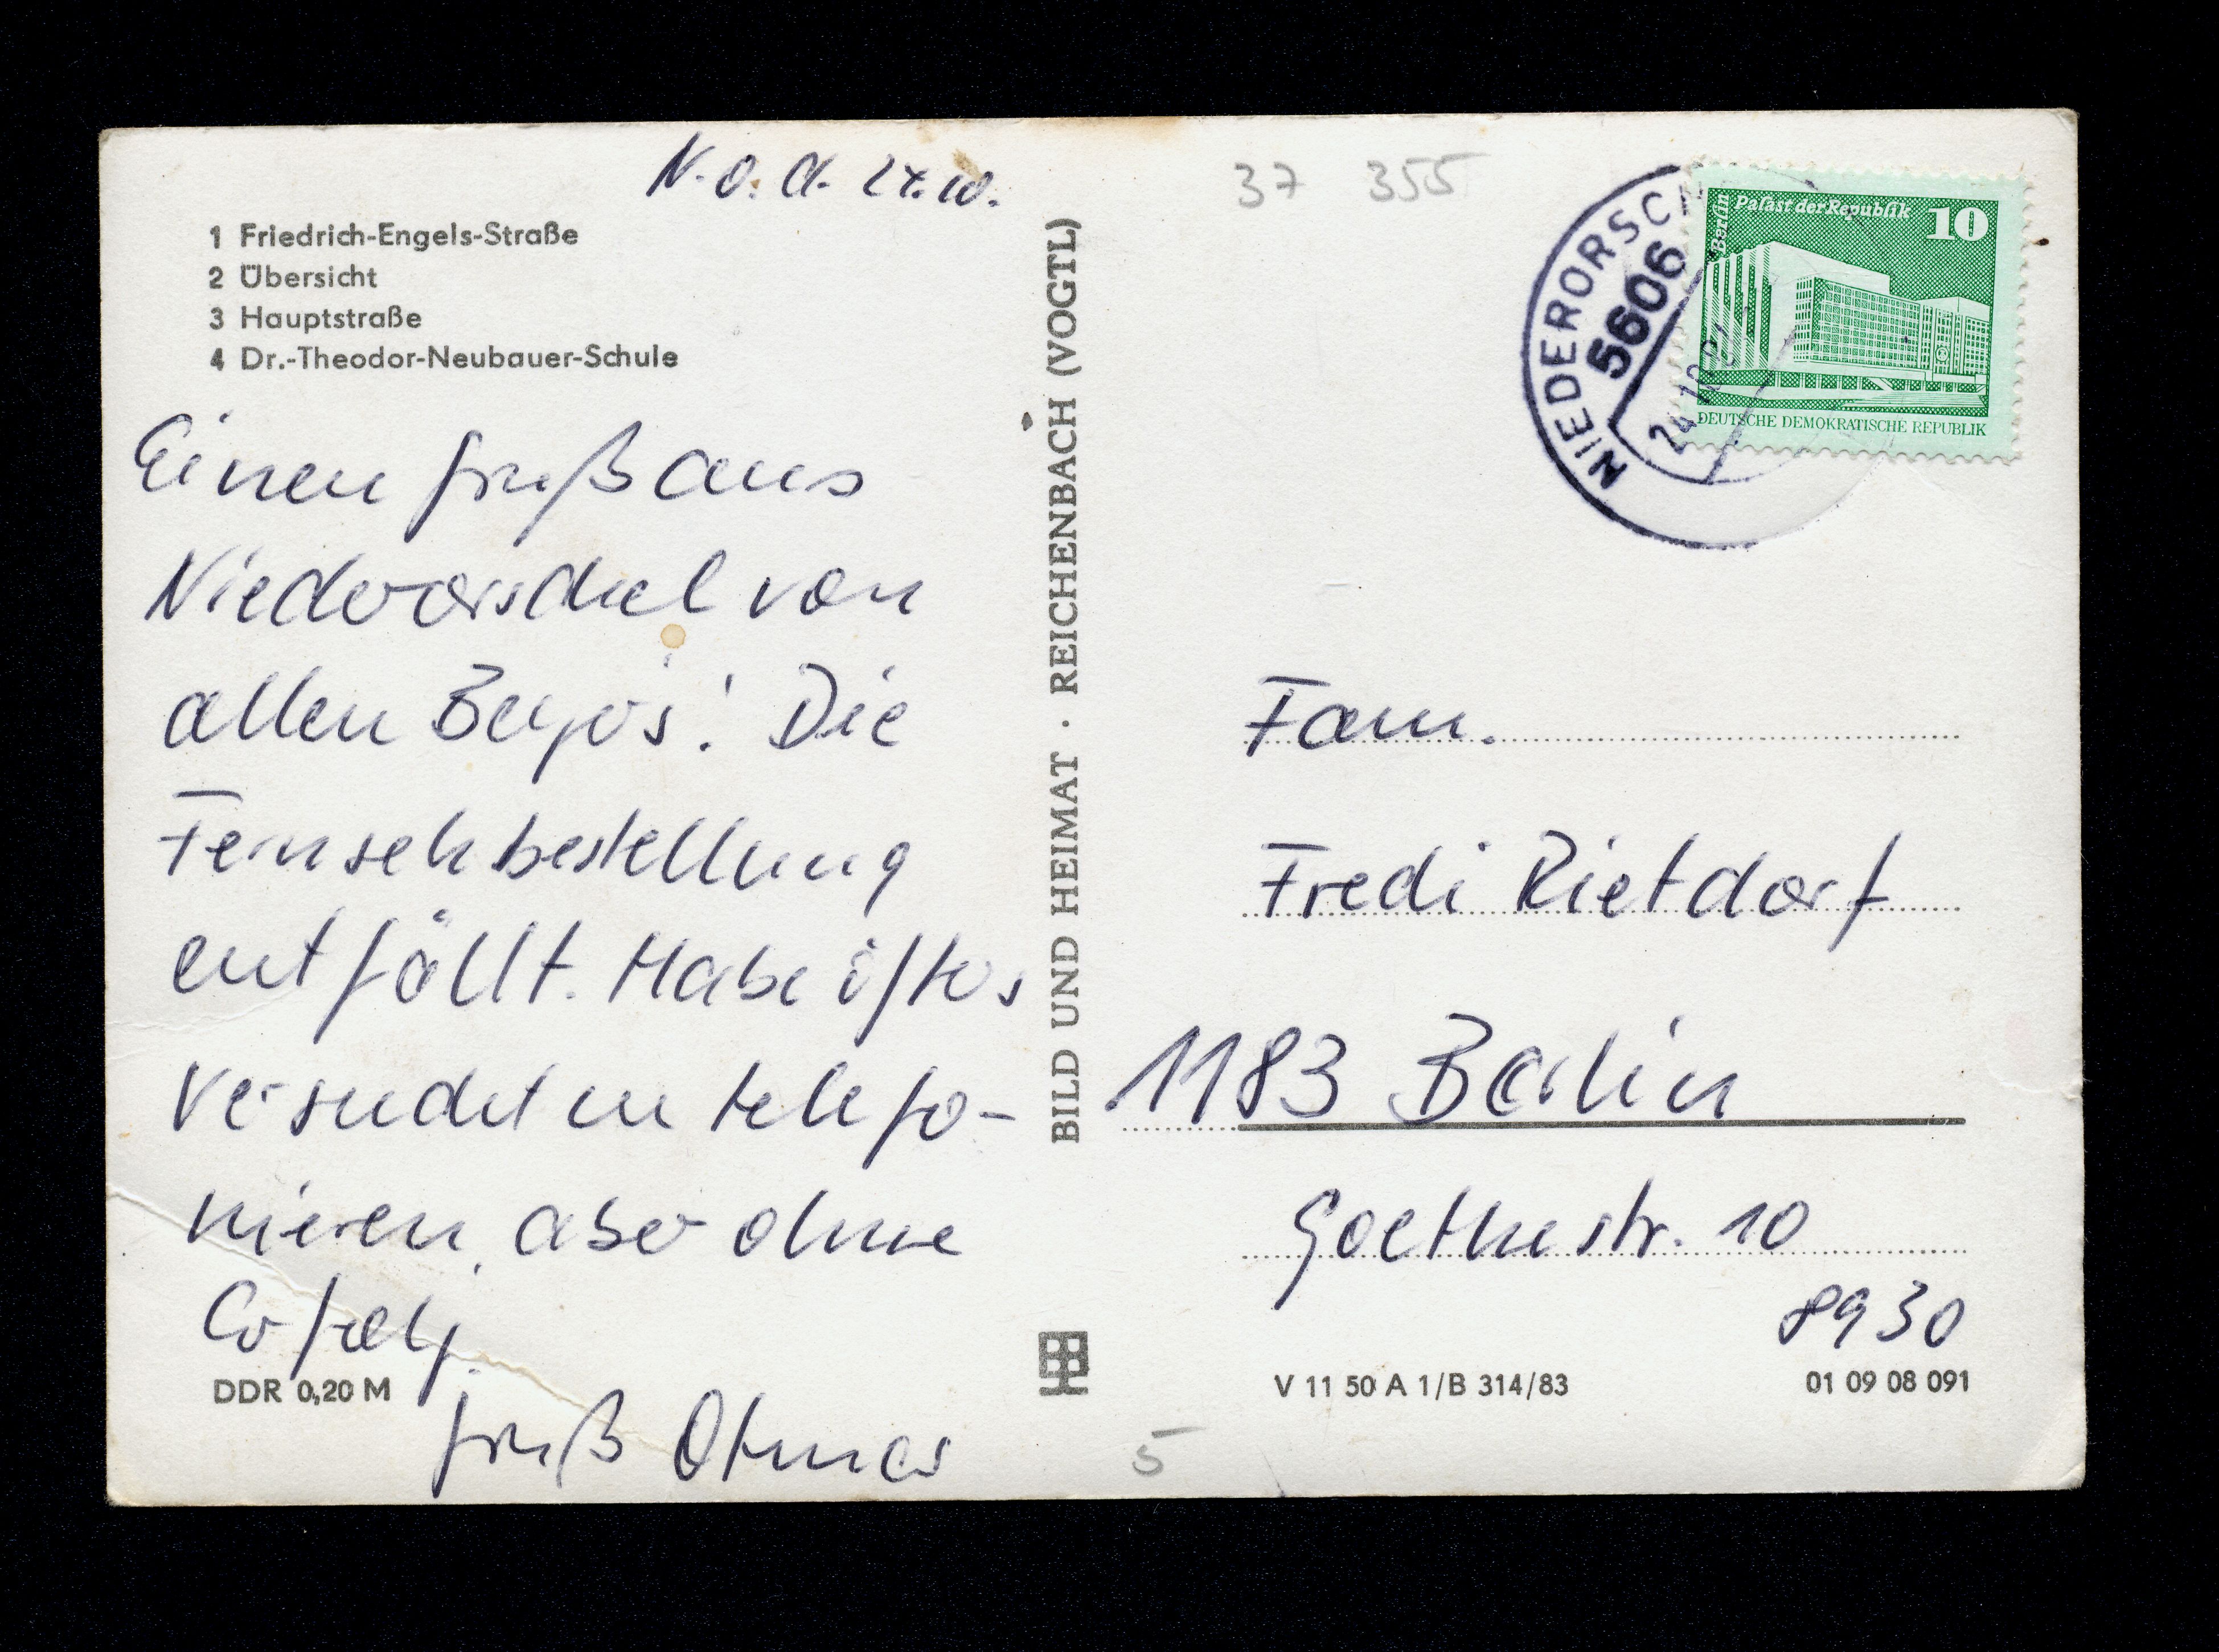 N.O. d. 24.10.
1 Friedrich-Engels-Straße
2 Übersicht
3 Hauptstraße
4 Dr.-Theodor-Neubauer-Schule
Einen Gruß aus
Niederorschel von
allen! Die
Fernsehbestellung
entfällt. Habe öfters
versucht zu telefo-
nieren, aber ohne
Erfolg.
Gruß Otmar
DDR 0,20 M
BILD UND HEIMAT · REICHENBACH (VOGTL)
37 355
NIEDERORSCH
5606
24.10.
Berlin
Palast der Republik
10
DEUTSCHE DEMOKRATISCHE REPUBLIK
Fam.
Fredi Rietdorf
1183 Berlin
Goethestr. 10
8930
V 11 50 A 1/B 314/83
01 09 08 091
5